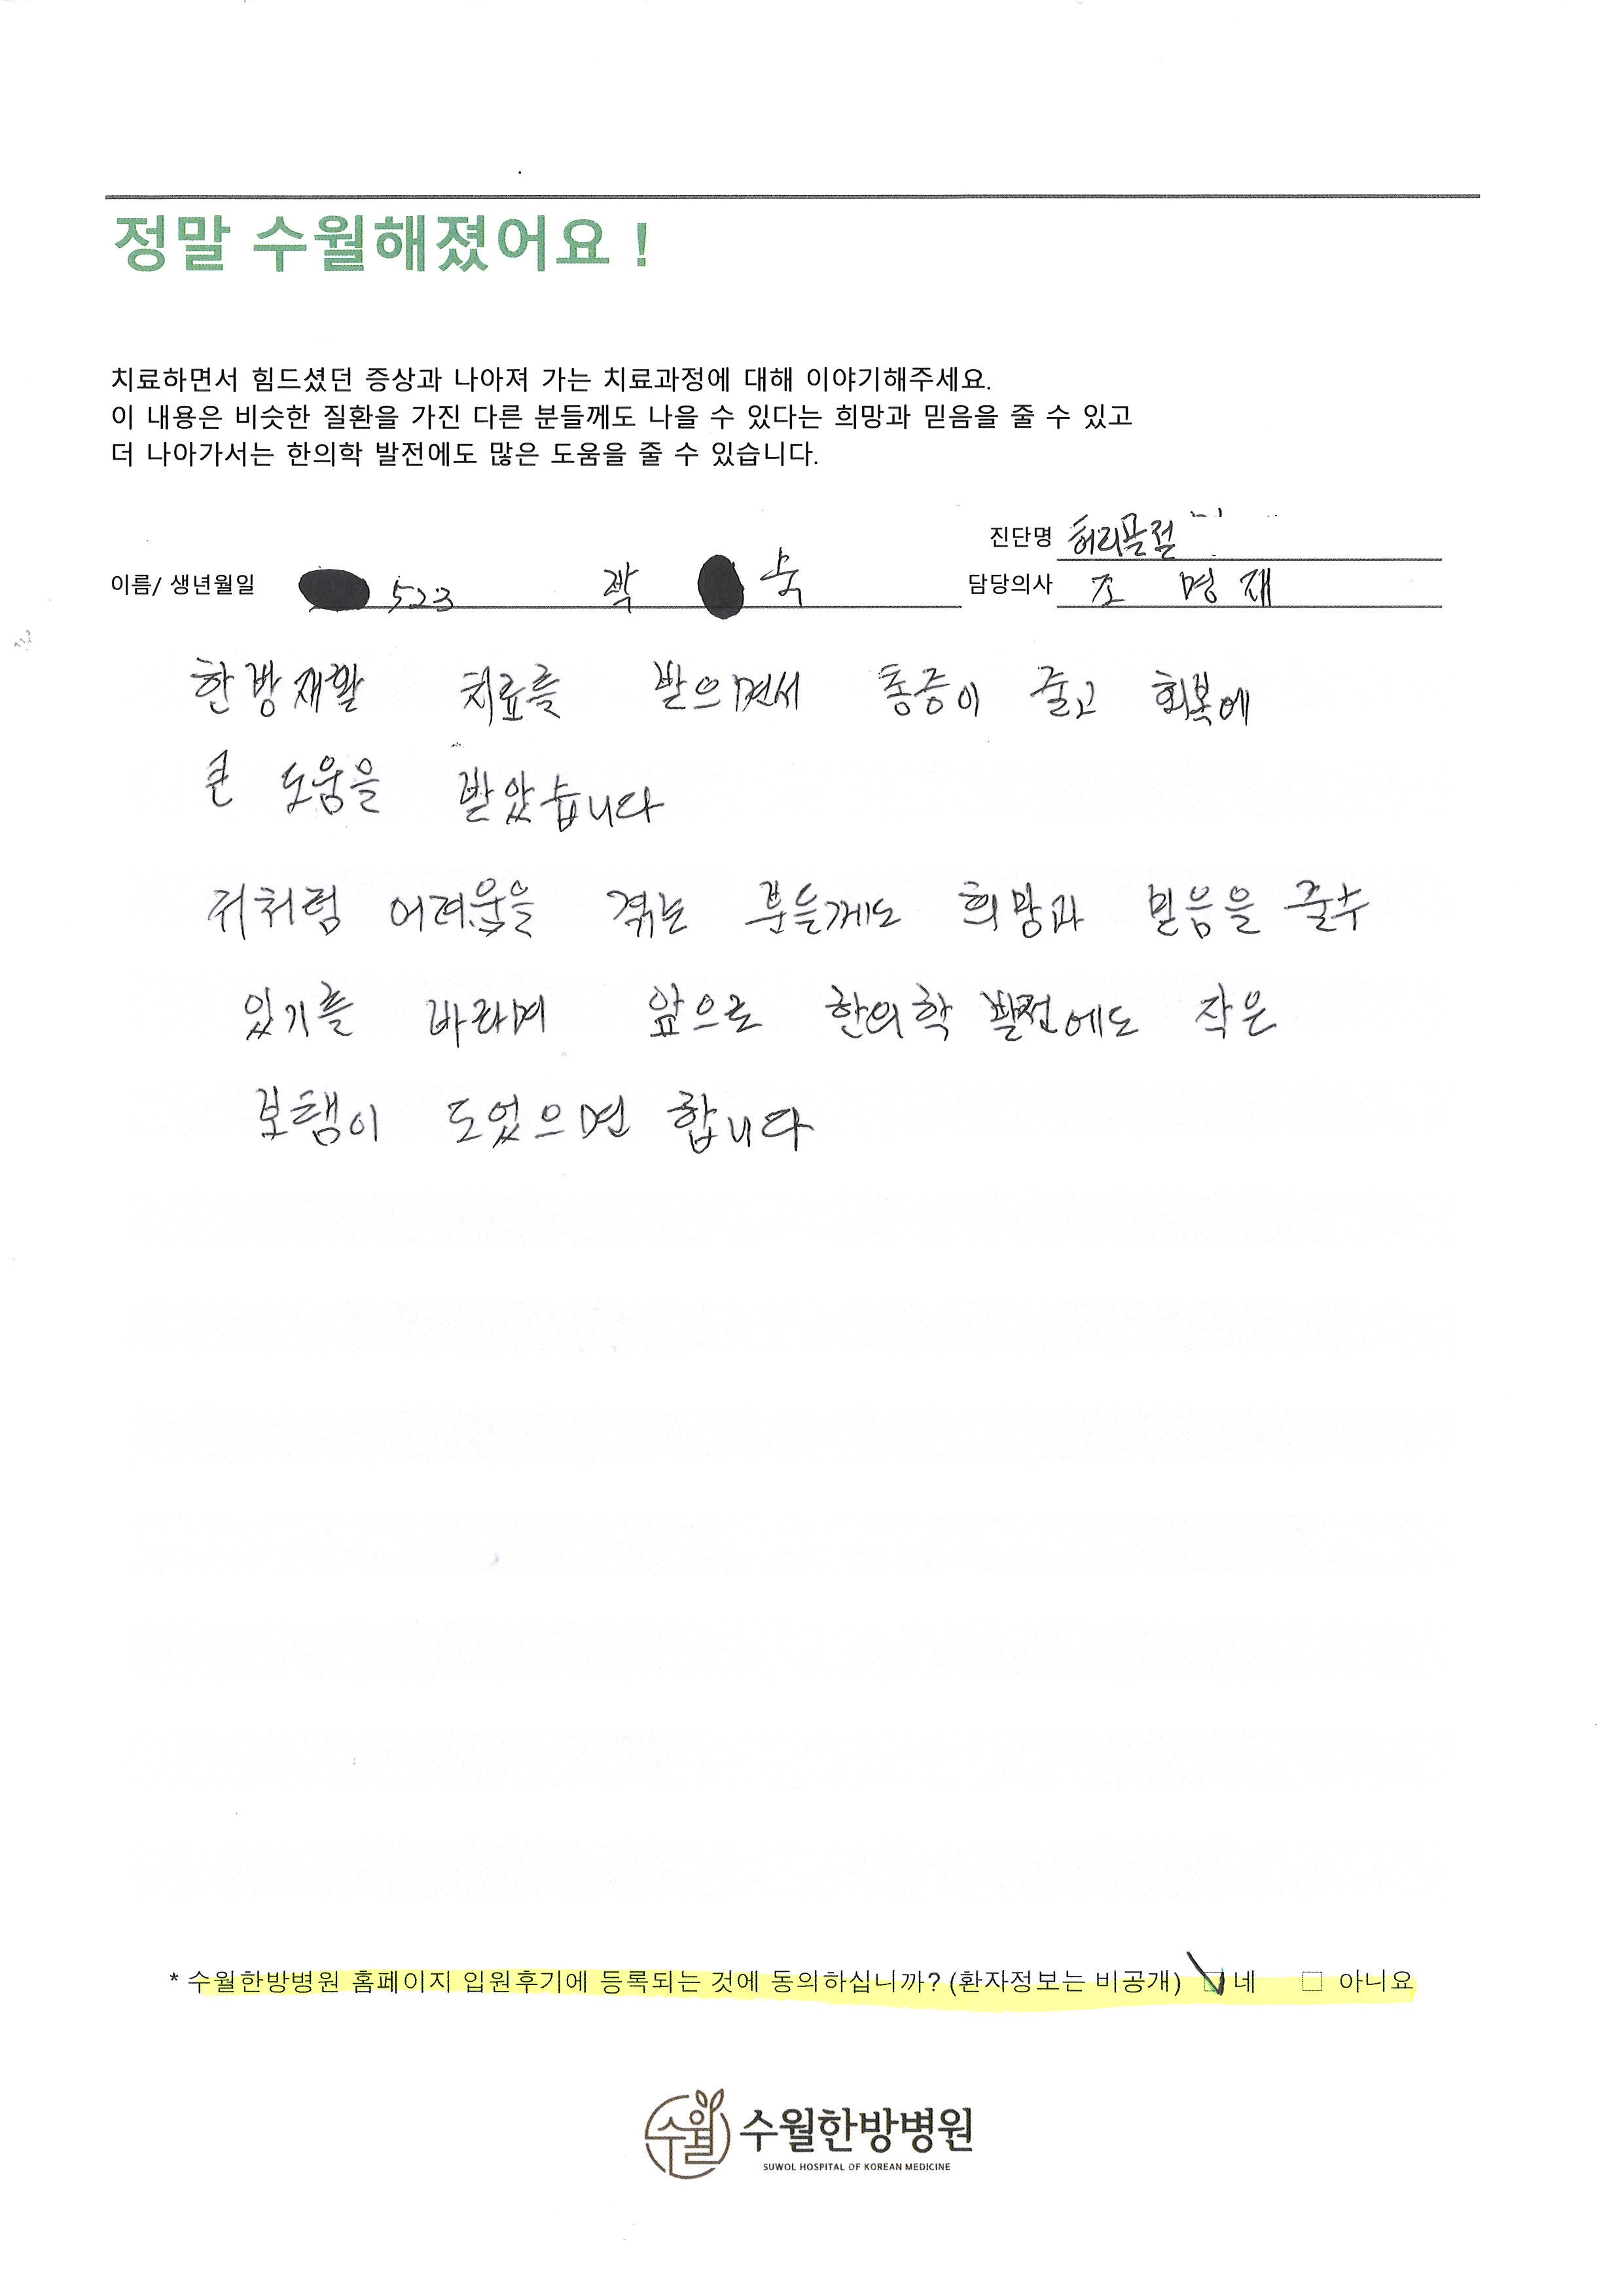 정말 수월해졌어요 !
치료하면서 힘드셨던 증상과 나아져 가는 치료과정에 대해 이야기해주세요.
이 내용은 비슷한 질환을 가진 다른 분들께도 나을 수 있다는 희망과 믿음을 줄 수 있고
더 나아가서는 한의학 발전에도 많은 도움을 줄 수 있습니다.
진단명 허리골절
이름/ 생년월일 523 박 숙 담당의사 조 명 재
한방재활 치료를 받으면서 통증이 줄고 회복에
큰 도움을 받았습니다
저처럼 어려움을 겪는 분들께도 희망과 믿음을 줄수
있기를 바라며 앞으로 한의학 발전에도 작은
보탬이 도었으면 합니다
* 수월한방병원 홈페이지 입원후기에 등록되는 것에 동의하십니까? (환자정보는 비공개) 네 아니요
수월 수월한방병원
SUWOL HOSPITAL OF KOREAN MEDICINE